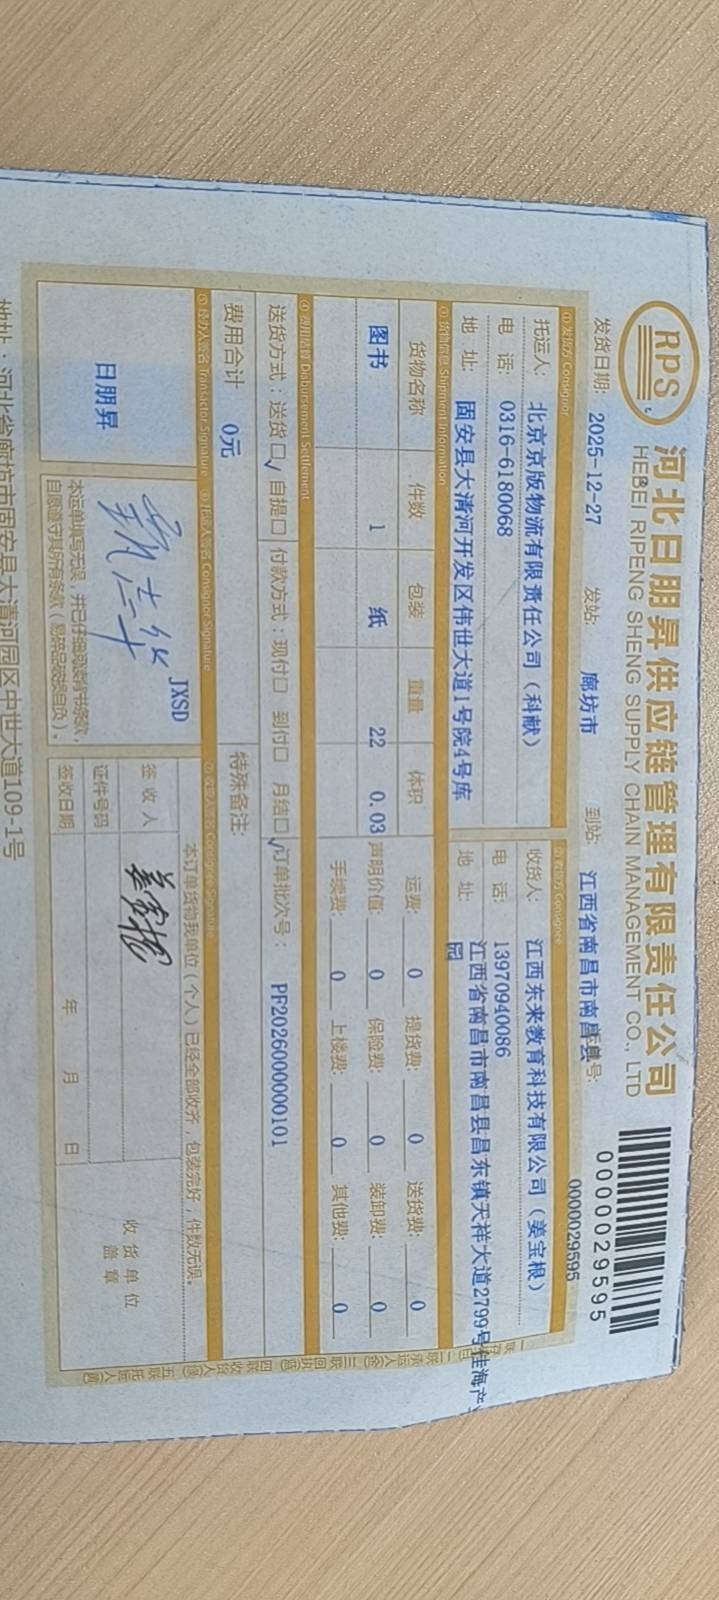 RPS
河北日朋昇供应链管理有限责任公司
HEBEI RIPENG SHENG SUPPLY CHAIN MANAGEMENT CO., LTD
0000029595
0000029595
发货日期: 2025-12-27 发站: 廊坊市 到站: 江西省南昌市南昌县 号:
① 发货方 Consignor
托运人: 北京京版物流有限责任公司（科献） 收货人: 江西东来教育科技有限公司（姜宝根）
电 话: 0316-6180068 电 话: 13970940086
地 址: 固安县大清河开发区伟世大道1号院4号库 地 址: 江西省南昌市南昌县昌东镇天祥大道2799号佳海产
园
Shipment Information
货物名称 件数 包装 重量 体积 运费: 0 提货费: 0 送货费: 0
图书 1 纸 22 0.03 声明价值: 0 保险费: 0 装卸费: 0
手续费: 0 上楼费: 0 其他费: 0
④ 费用结算 Disbursement Settlement
送货方式：送货☑ 自提□ 付款方式：现付□ 到付□ 月结☑ 订单批次号： PF2026000000101
费用合计 0元 特殊备注:
⑤ 经办人签名 Transactor Signature ⑥ 托运人签名 Consignor Signature
日朋昇
JXSD
本订单货物我单位（个人）已经全部收齐，包装完好，件数无误。
签 收 人
证件号码
签收日期 年 月 日
收货单位
盖 章
地址：河北省廊坊市固安县大清河园区中世大道109-1号